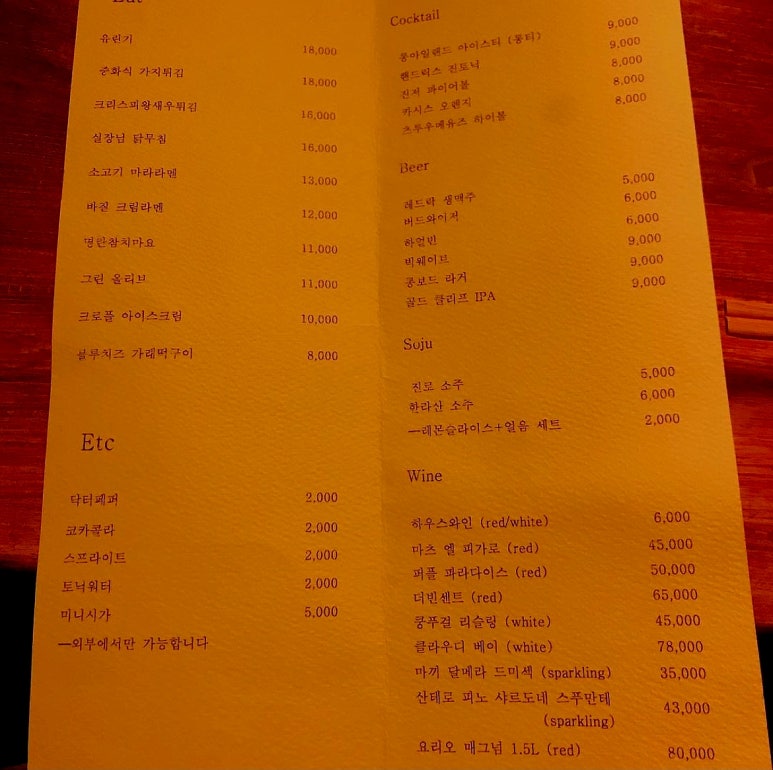 Eat
유린기 18,000
중화식 가지튀김 18,000
크리스피왕새우튀김 18,000
실장님 닭무침 16,000
소고기 마라라멘 13,000
바질 크림라멘 12,000
명란참치마요 11,000
그린 올리브 11,000
크로플 아이스크림 10,000
블루치즈 가래떡구이 8,000
Etc
닥터페퍼 2,000
코카콜라 2,000
스프라이트 2,000
토닉워터 2,000
미니시가 5,000
—외부에서만 가능합니다
Cocktail
롱아일랜드 아이스티 (롱티) 9,000
핸드릭스 진토닉 9,000
진저 파이어볼 8,000
카시스 오렌지 8,000
츠투우메유즈 하이볼 8,000
Beer
레드락 생맥주 5,000
버드와이저 6,000
하얼빈 6,000
빅웨이브 9,000
롱보드 라거 9,000
골드 클리프 IPA 9,000
Soju
진로 소주 5,000
한라산 소주 6,000
—레몬슬라이스+얼음 세트 2,000
Wine
하우스와인 (red/white) 6,000
마츠 엘 피가로 (red) 45,000
퍼플 파라다이스 (red) 50,000
더빈센트 (red) 65,000
쿵푸걸 리슬링 (white) 45,000
클라우디 베이 (white) 78,000
마끼 달메라 드미섹 (sparkling) 35,000
산테로 피노 샤르도네 스푸만테 43,000
(sparkling)
요리오 매그넘 1.5L (red) 80,000